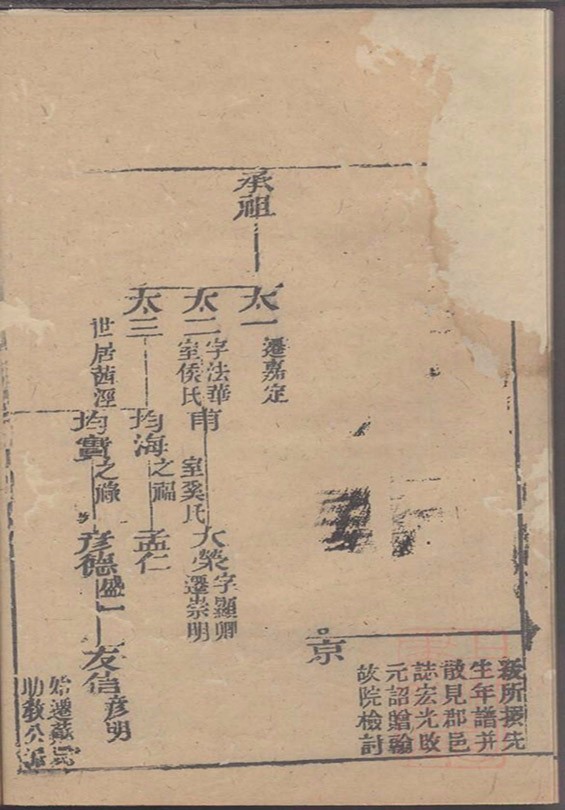 所撰先
生年譜并
散見郡邑
誌宏光改
元詔贈翰
故院檢討
京
承祖
太一
遷嘉定
太二
字法華
室侯氏
甫
室奚氏
大榮
字顯卿
遷崇明
太三
世居茜涇
均海
之福
孟仁
均實
之祿
彥德
盛一
友信
彥明
始遷
助教公